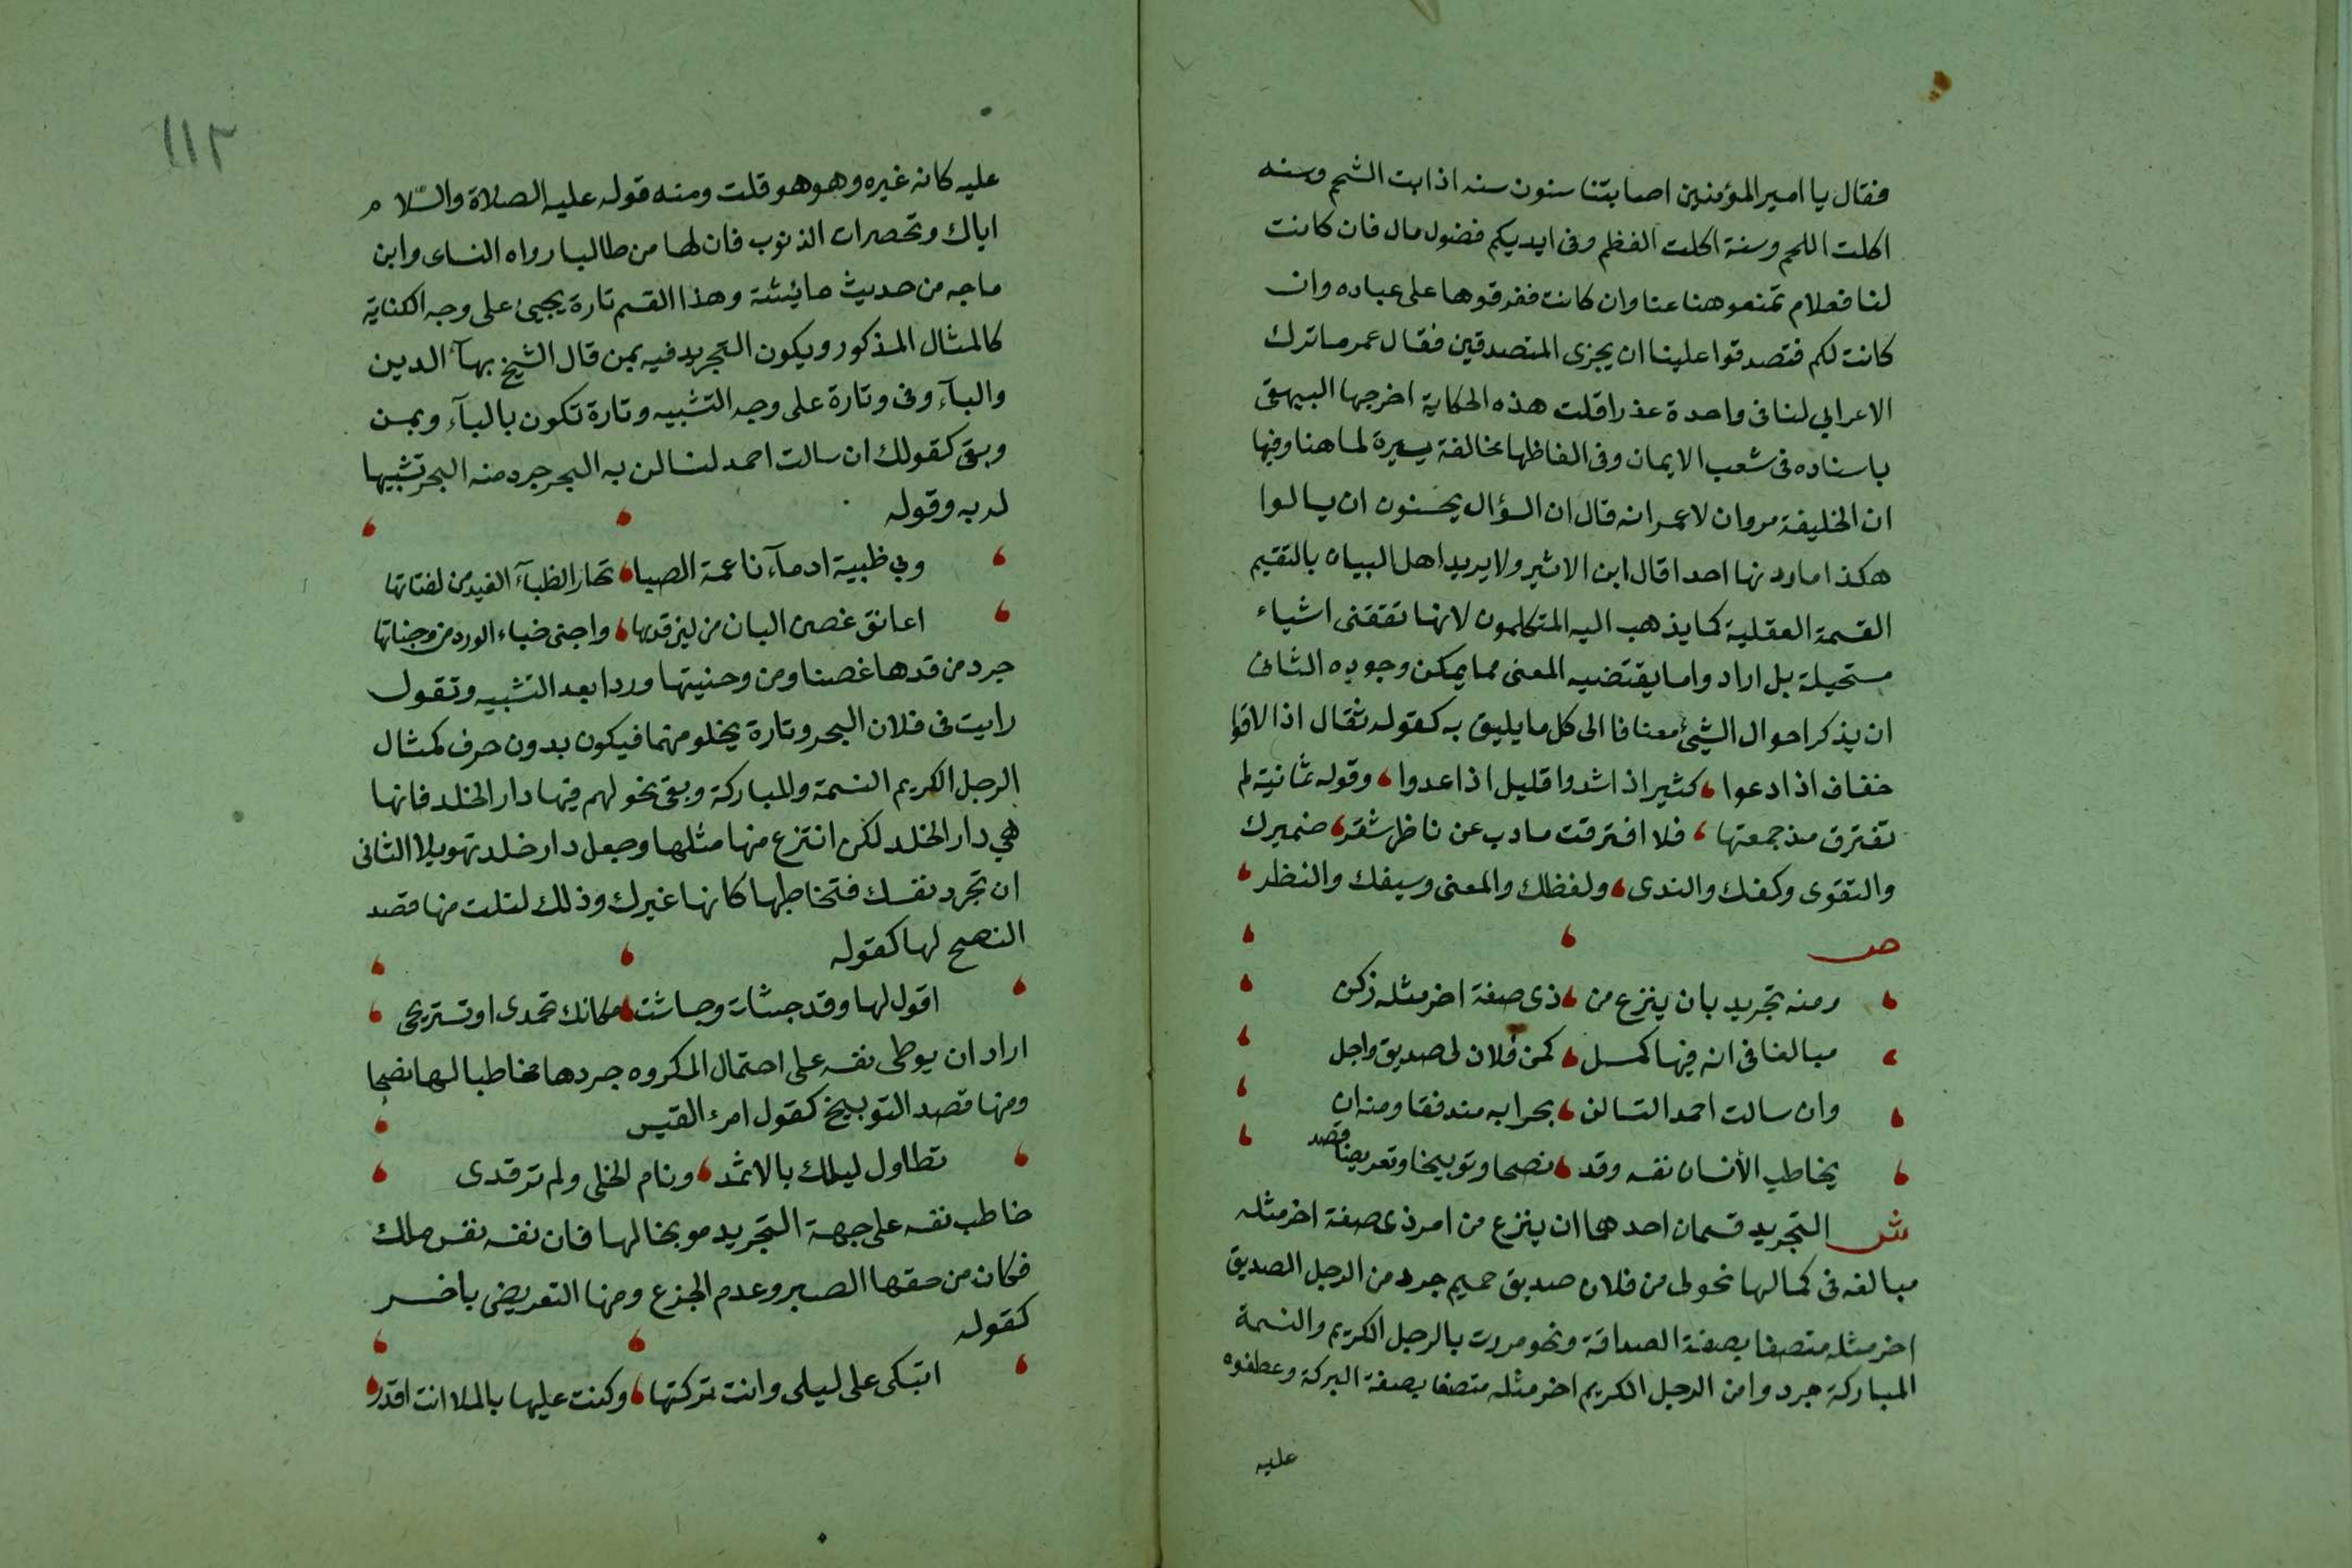 فقال يا امير المؤمنين اصابتنا سنون سنه اذابت الشحم وسنه
اكلت اللحم وسنة اكلت العظم وفى ايديكم فضول مال فان كانت
لنا فعلام تمنعوهنا عنا وان كانت ففرقوها على عباده وان
كانت لكم فتصدقوا علينا ان يجزى المتصدقين فقال عمر ما ترك
الاعرابي لنا فى واحدة عذرا قلت هذه الحكاية اخرجها البيهقى
باسناده فى شعب الايمان وفى الفاظها مخالفة يسيرة لما هنا وفيها
ان الخليفة مروان لا عمر انه قال ان السؤال يحسنون ان يسالوا
هكذا ما رددنها احدا قال ابن الاثير ولا يريد اهل البيان بالتقيم
القسمة العقلية كما يذهب اليه المتكلمون لانها تقتضى اشياء
مستحيلة بل ارادوا ما يقتضيه المعنى مما يمكن وجوده الثانى
ان يذكر احوال الشيئ مضافا الى كل ما يليق به كقوله ثقال اذا لاقوا
خفاف اذا دعوا ، كثير اذا شدوا قليل اذا عدوا ، وقوله ثمانية لم
تفترق مذ جمعتها ، فلا افترقت ما دب عن ناظر شفر ، ضميرك
والتقوى وكفك والندى ، ولفظك والمعنى وسيفك والنظر ،
ص
ومنه تجريد بان ينزع من ، ذى صفة اخر مثله زكن
مبالغا فى انه فيها كمل ، كمن فلان لى صديق واجل
وان سالت احمد التسالن ، بحرا به مندفقا ومنه ان
يخاطب الأنسان نفسه وقد ، نصحا وتوبيخا وتعريضا قصد
ش التجريد قسمان احدهما ان ينزع من امر ذى صفة اخر مثله
مبالغه فى كمالها نحو لى من فلان صديق حميم جرد من الرجل الصديق
اخر مثله متصفا بصفة الصداقة ونحو مررت بالرجل الكريم والنسمة
المباركة جردوا من الرجل الكريم اخر مثله متصفا بصفة البركة وعطفوه
عليه
١١٢
عليه كانه غيره وهو هو قلت ومنه قوله عليه الصلاة والسّلام
اياك ومحقرات الذنوب فان لها من طالبا رواه النساى وابن
ماجه من حديث عائشة وهذا القسم تارة يجيئ على وجه الكناية
كالمثال المذكور ويكون التجريد فيه بمن قال الشيخ بهآ الدين
والبآء وفى وتارة على وجه التشبيه وتارة تكون بالبآء وبمن
وبقى كقولك ان سالت احمد لنسالن به البحر جرد منه البحر تشبيها
له به وقوله
وبي ظبية ادمآء ناعمة الصبا ، تحار الظبآء الغيد من لفتاتها
اعانق غصن البان من لين قدها ، واجنى جناء الورد من وجناتها
جرد من قدها غصنا ومن وجنيتها وردا بعد التشبيه وتقول
رايت فى فلان البحر وتارة يخلو منهما فيكون بدون حرف كمثال
الرجل الكريم النسمة والمباركة وبقى نحو لهم فيها دار الخلد فانها
هي دار الخلد لكن انتزع منها مثلها وجعل دار خلد تهويلا الثانى
ان تجرد نفسك فتخاطبها كانها غيرك وذلك لنكت منها قصد
النصح لها كقوله
اقول لها وقد جشات وجاشت ، مكانك تحمدى او تستريحى
اراد ان يوطى نفسه على احتمال المكروه جردها مخاطبا لها نصحا
ومنها قصد التوبيخ كقول امرئ القيس
تطاول ليلك بالاثمد ، ونام الخلى ولم ترقدى
خاطب نفسه على جهة التجريد موبخا لها فان نفسه نفس ملك
فكان من حقها الصبر وعدم الجزع ومنها التعريض باخر
كقوله
اتبكى على ليلى وانت تركتها ، وكنت عليها بالملا انت اقدر